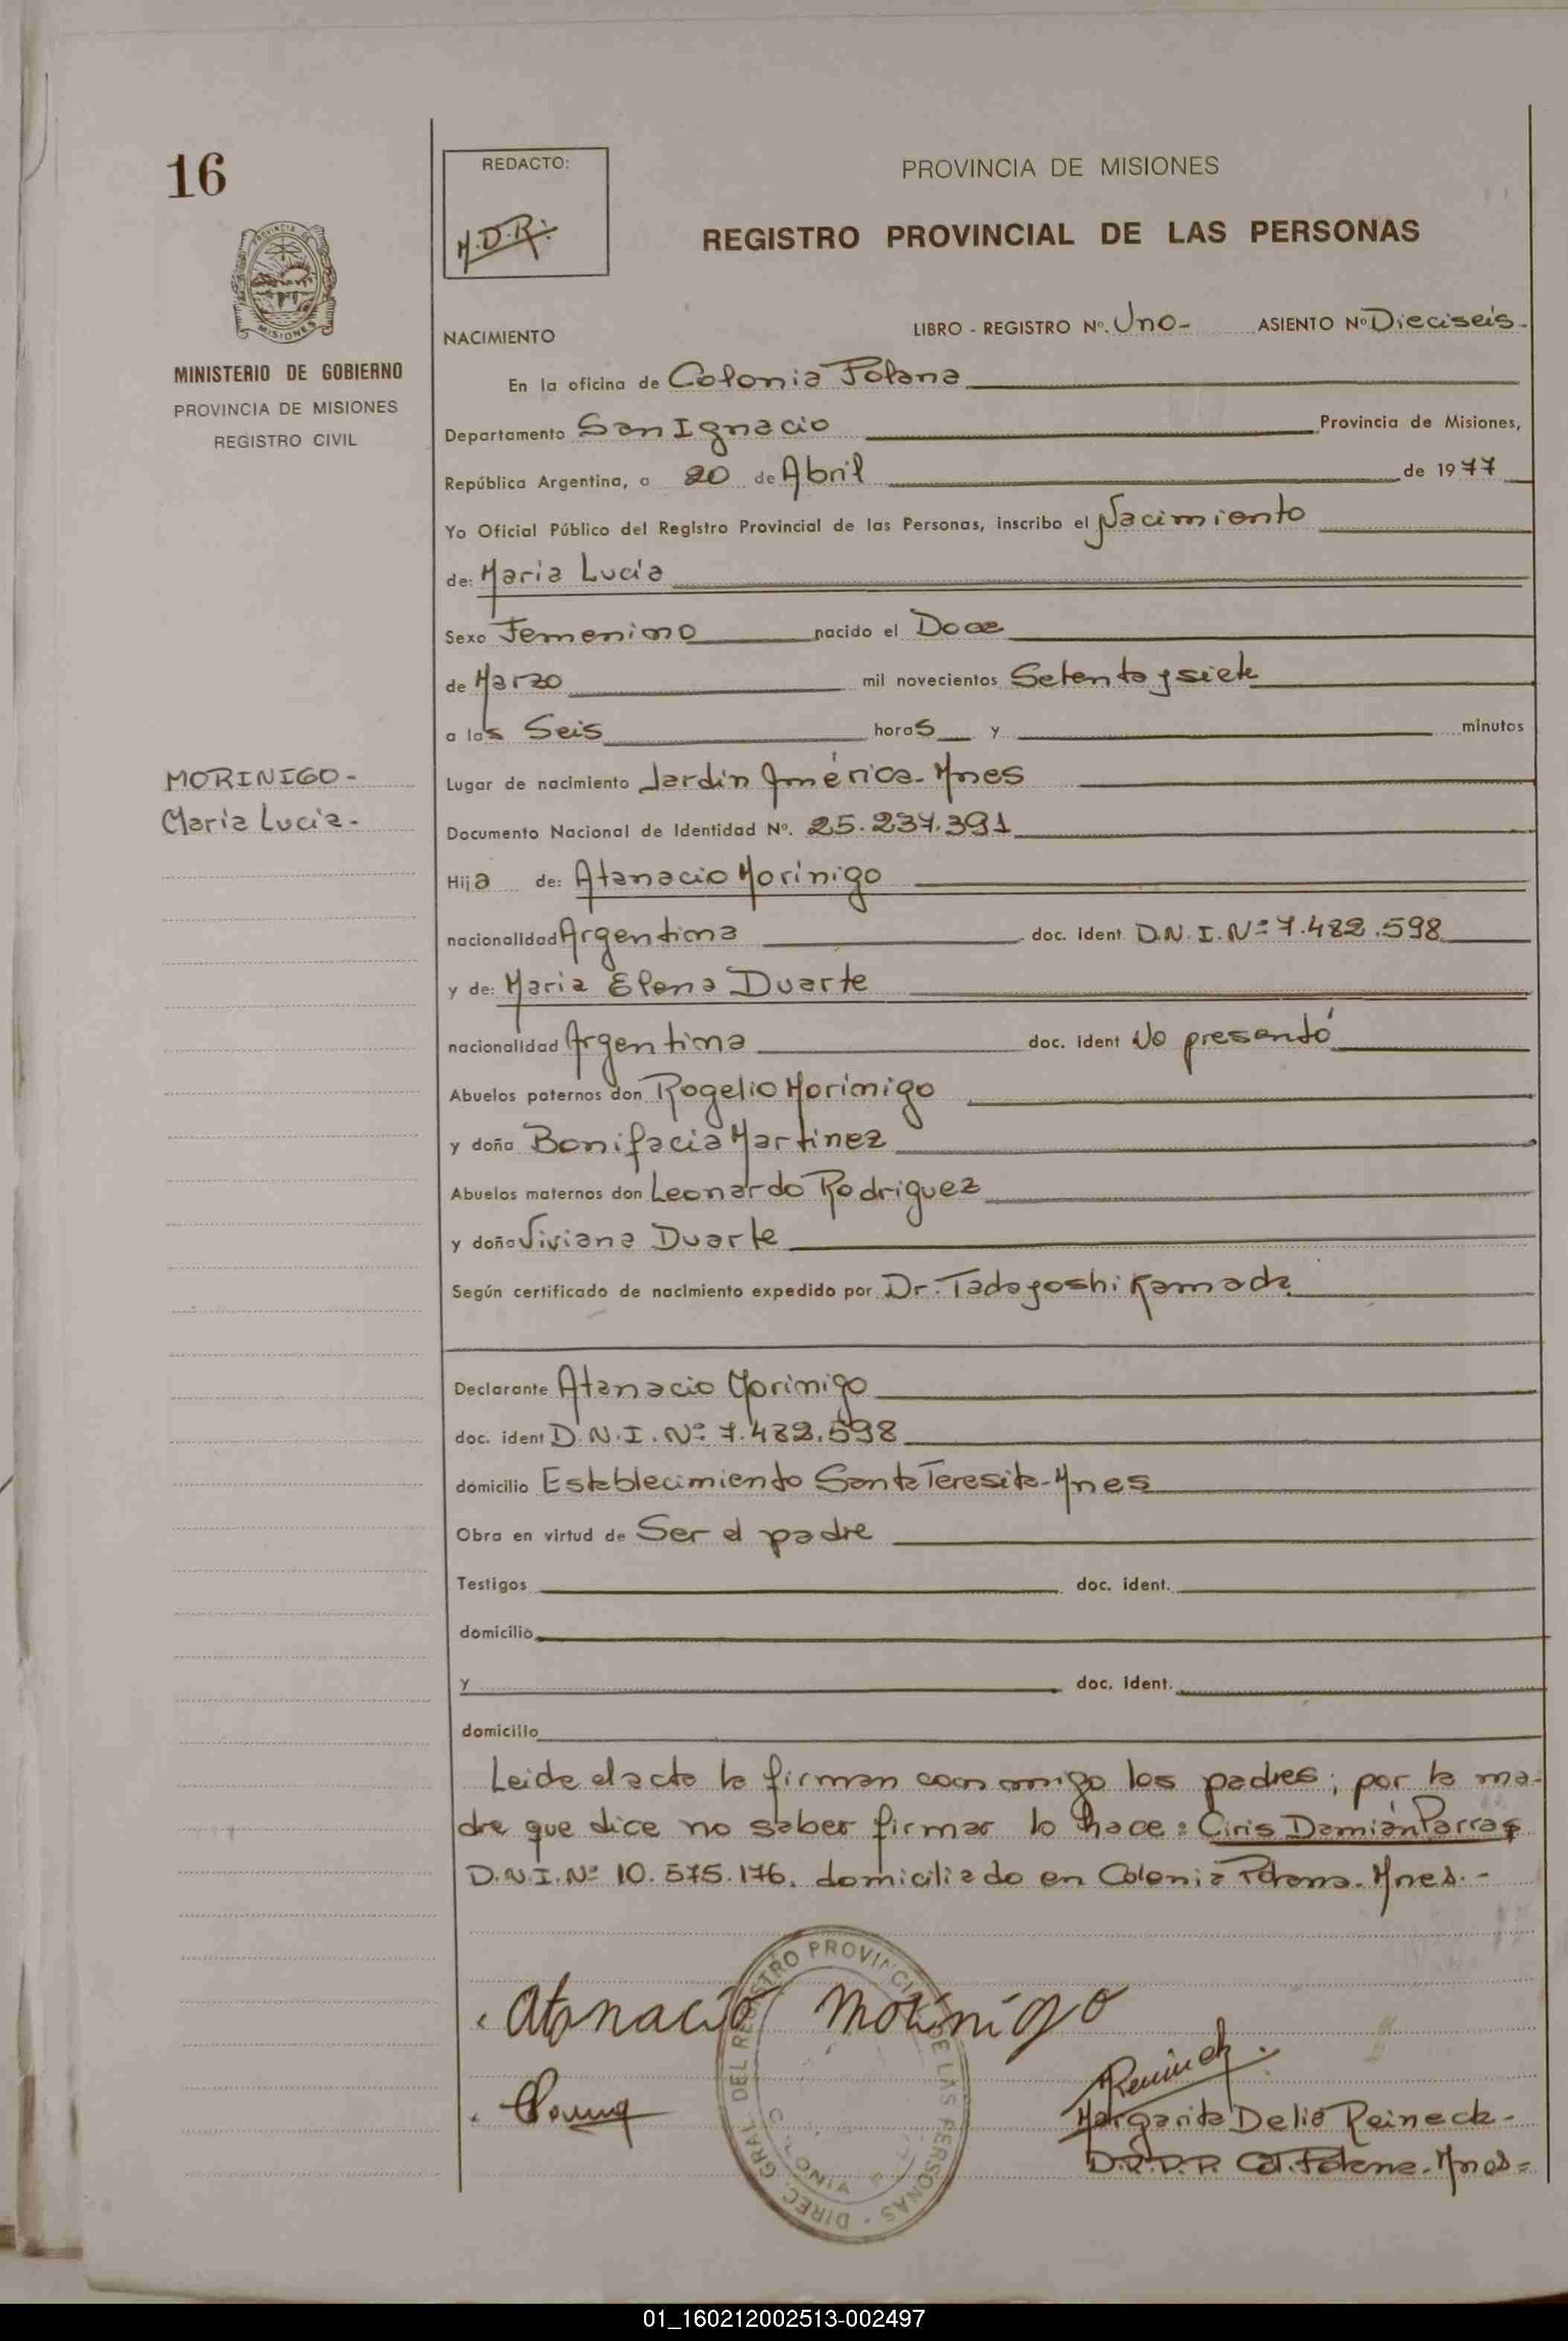 16
REDACTO:
M.D.R.
PROVINCIA DE MISIONES
REGISTRO PROVINCIAL DE LAS PERSONAS
MISIONES
MINISTERIO DE GOBIERNO
PROVINCIA DE MISIONES
REGISTRO CIVIL
NACIMIENTO LIBRO - REGISTRO Nº. Uno- ASIENTO Nº Dieciseis-
En la oficina de Colonia Polana
Departamento San Ignacio Provincia de Misiones,
República Argentina, a 20 de Abril de 1977
Yo Oficial Público del Registro Provincial de las Personas, inscribo el Nacimiento
de: Maria Lucia
Sexo Femenino nacido el Doce
de Marzo mil novecientos Setenta y siete
a las Seis horas y minutos
Lugar de nacimiento Jardin América-Mnes
Documento Nacional de Identidad Nº. 25.237.391
MORINIGO-
Maria Lucia-
Hija de: Atanacio Morinigo
nacionalidad Argentina doc. ident D.N.I.Nº 7.482.598
y de: Maria Elena Duarte
nacionalidad Argentina doc. ident No presentó
Abuelos paternos don Rogelio Morinigo
y doña Bonifacia Martinez
Abuelos maternos don Leonardo Rodriguez
y doña Viviana Duarte
Según certificado de nacimiento expedido por Dr. Tadayoshi Kamada
Declarante Atanacio Morinigo
doc. ident D.N.I.Nº 7.482.598
domicilio Establecimiento Santa Teresita-Mnes
Obra en virtud de Ser el padre
Testigos doc. ident.
domicilio
y doc. ident.
domicilio
Leida el acta la firman con migo los padres; por la ma-
dre que dice no saber firmar lo hace: Ciris Damián Parras
D.N.I.Nº 10.575.176. domiciliado en Colonia Polana-Mnes.-
Atanacio Morinigo
DIREC. GRAL. DEL REGISTRO PROVINCIAL DE LAS PERSONAS
COLONIA
Reineck
Margarita Delia Reineck-
D.R.P.P. Col. Polana-Mnes=
01_160212002513-002497